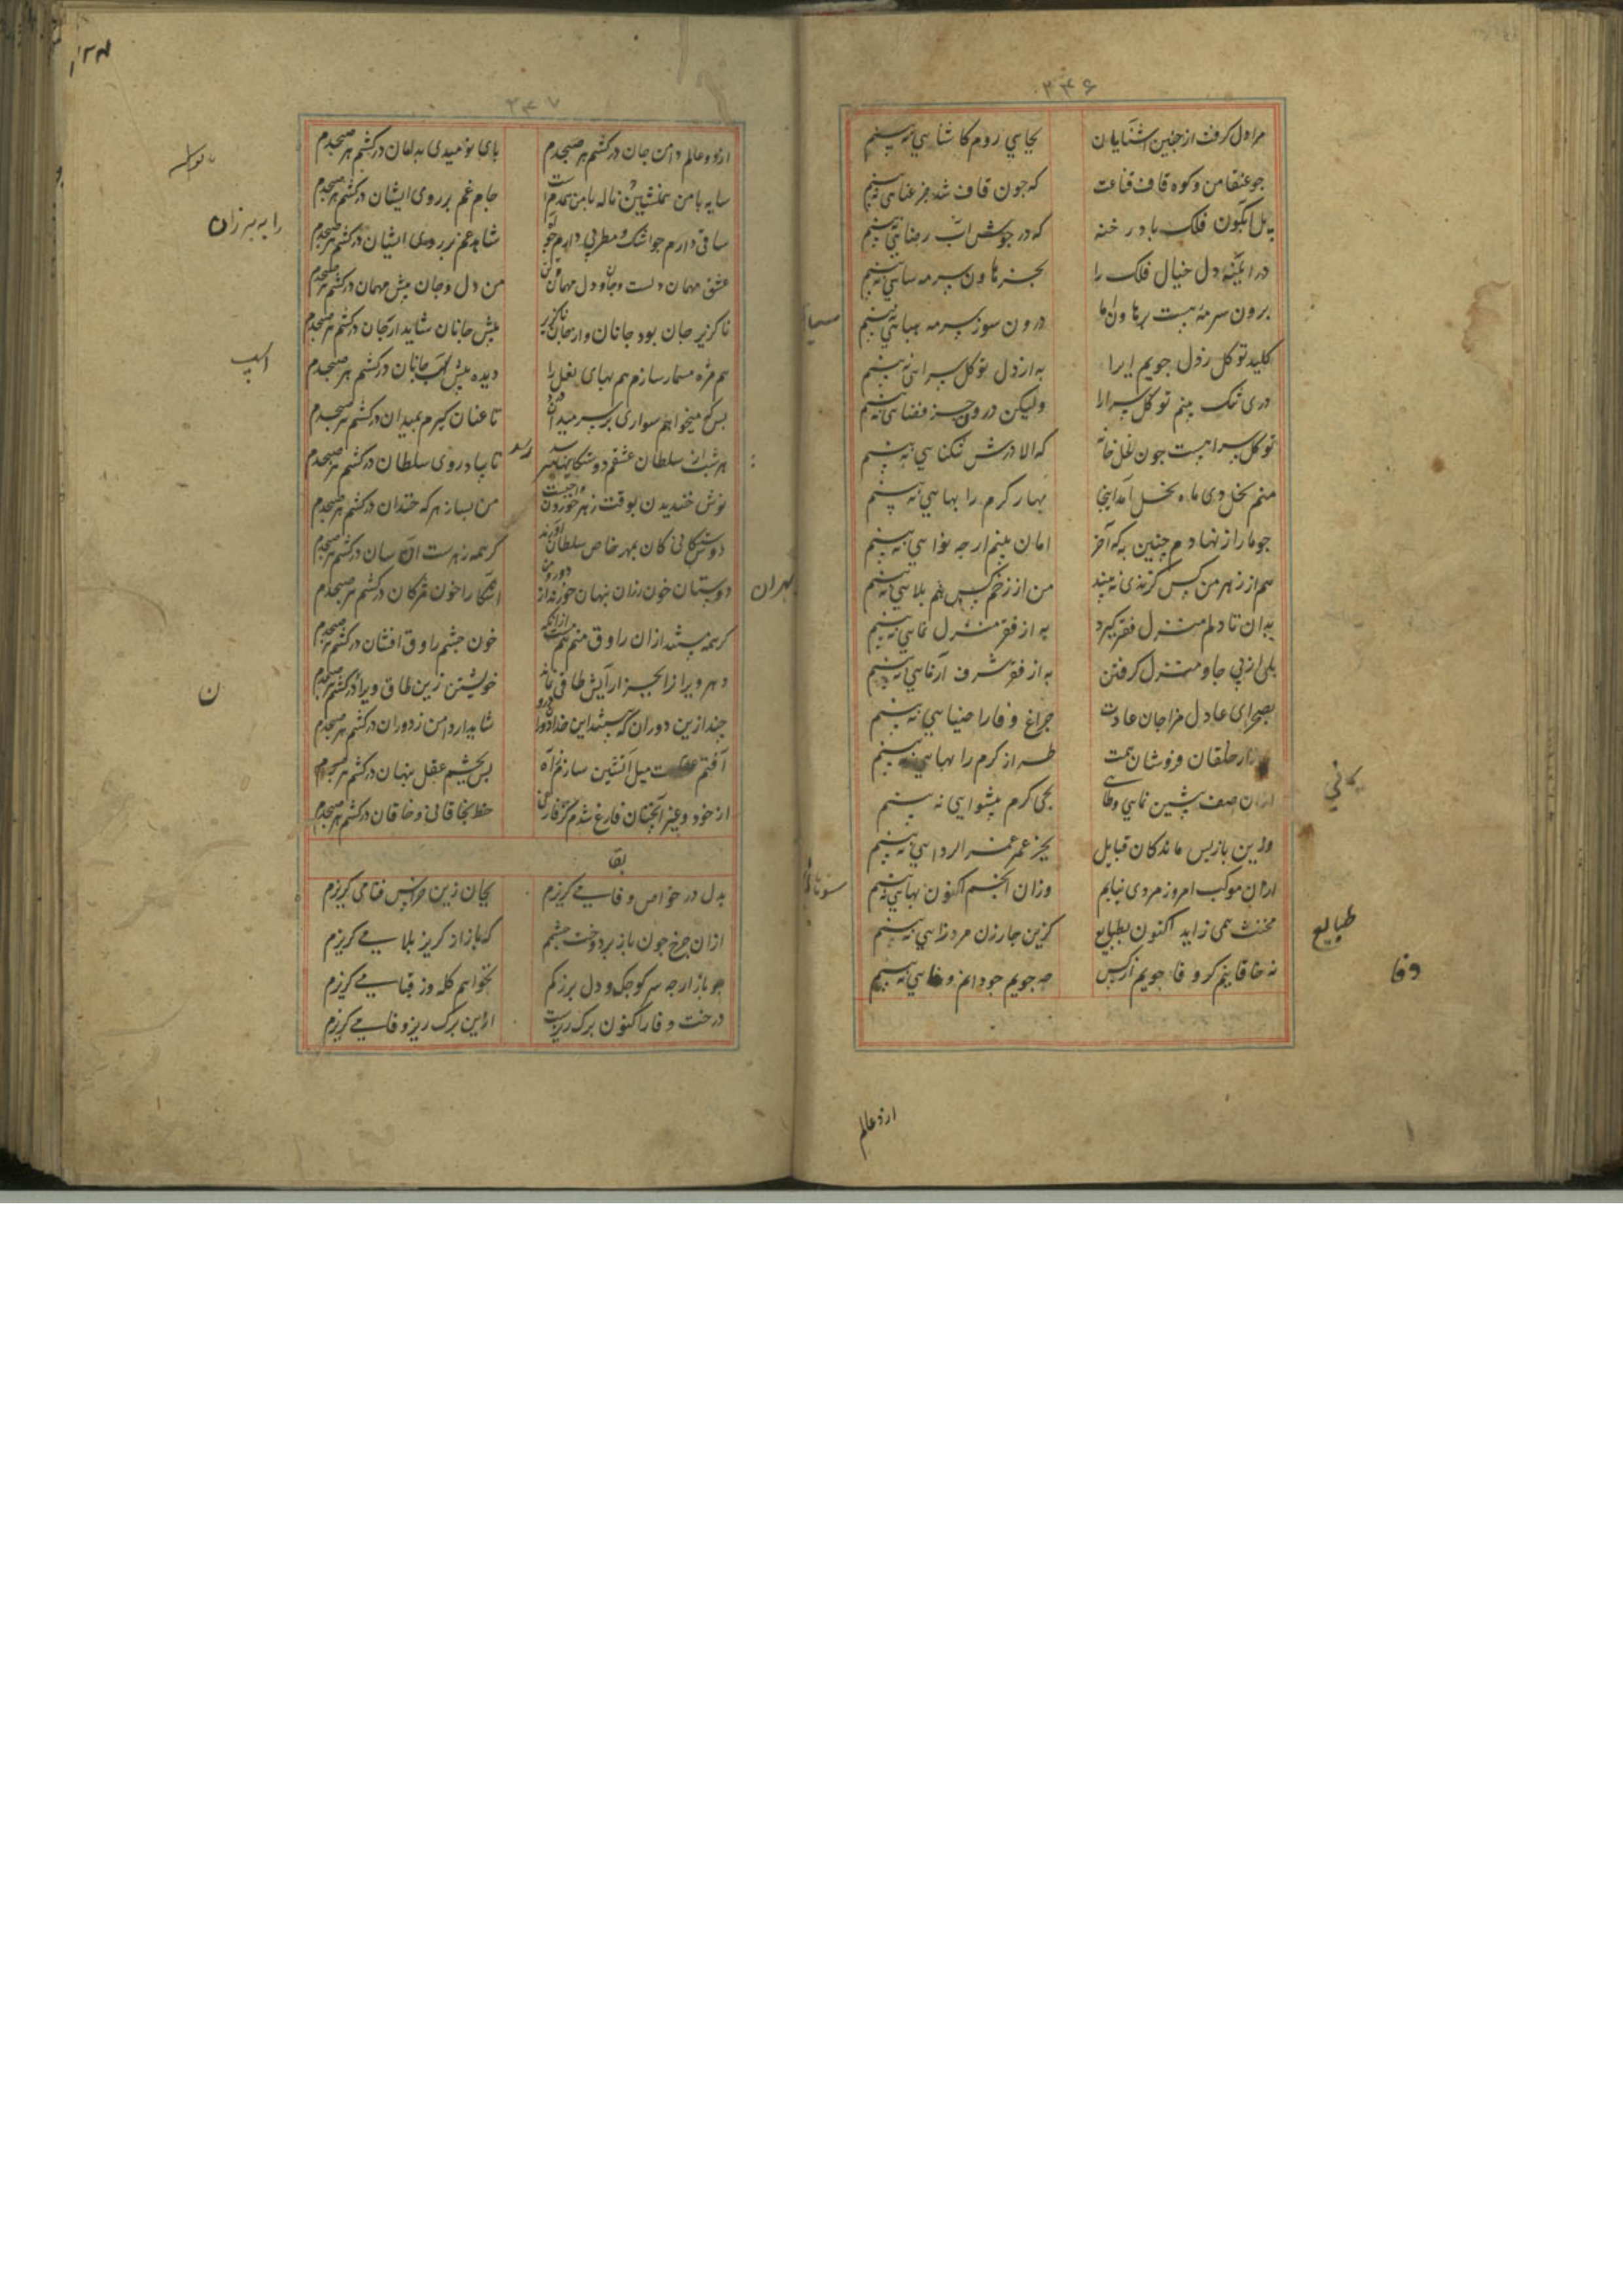 ۲۳۶
مرا دل کرفت از چنین آشنایان بجایی روم کاشنایی نه بینم
چو عنقا من و کوه قاف قناعت که چون قاف شد جز عنایی نه بینم
به پل آبگون فلک باد رخنه که در جوش آب رضایی نه بینم
در آیینه دل خیال فلک را بجز هاون سرمه سایی نه بینم
برون سرمه هست بر هاون اما درون سوز سرمه بهایی نه بینم
کلید توکل ز دل جویم ایرا به از دل توکل سرایی نه بینم
دری تنک بینم توکل سرا را ولیکن درون جز فضایی نه بینم
توکل سرا هست چون نحل خانه که الا درش تنکنایی نه بینم
منم نخل و دی ماه بخل آمد اینجا بهار کرم را بهایی نه بینم
چو ما را ز نهادم چنین به که آخر امان بینم ار چه نوایی نه بینم
هم از زهر من کس کزندی نه بیند من از زخم کس هم بلایی نه بینم
بدان تا دلم منزل فقر کیرد به از فقر منزل نمایی نه بینم
بلی از پی جا و منزل کرفتن به از فقر شرف آزمایی نه بینم
بصحرای عادل مزاجان عادت چراغ وفا را ضیایی نه بینم
ببازار خلقان فروشان همت طراز کرم را بهایی نه بینم
ازان صف پیشین نمایی وطایی بجی کرم پیشوایی نه بینم
وزین بازپس ماندکان قبایل بجز عمر عمر الردایی نه بینم
ازان موکب امروز مردی نیابم وزان انجم اکنون بهایی نه بینم
مخنث همی زاید اکنون بطبایع کزین چار زن مرد زایی نه بینم
نه خاقانیم کر وفا جویم از کس چه جویم چو دانم وفایی نه بینم
کانی
طبایع
وفا
از دو عالم
۲۳۷
از دو عالم دامن جان درکشم هر صبحدم پای نومیدی بدامان درکشم هر صبحدم
سایه با من همنشین و ناله با من همدم است جام غم بر روی ایشان درکشم هر صبحدم
ساقی دارم چو اشک و مطربی دارم چو آه شاهد غم بر روی ایشان درکشم هر صبحدم
عشق مهمان دلست و جان و دل مهمان من من دل و جان پیش مهمان درکشم هر صبحدم
ناکزیر جان بود جانان و از جان ناکزیر پیش جانان شاید ار جان درکشم هر صبحدم
هم مژه مسمار سازم هم بهای نعل را دیده پیش اسب جانان درکشم هر صبحدم
بس که میخواهم سواری بر سر میدان درد تا عنان کیرم بمیدان درکشم هر صبحدم
هر شب از سلطان عشقم دوستکانیها رسد تا بیاد روی سلطان درکشم هر صبحدم
نوش خندیدن بوقت زهر خوردن واجبست من بسا زهر که خندان درکشم هر صبحدم
دوستکانی کان بمهر خاص سلطان آورند کر همه زهرست آن سان درکشم هر صبحدم
دوستان خون رزان پنهان خورند از دور و من آشکارا خون مژکان درکشم هر صبحدم
کر همه مستند ازان راوق منم هم مست ازانکه خون چشم راوق افشان درکشم هر صبحدم
دهر ویران را بجز آرایش طاقی نماند خویشتن زین طاق ویران درکشم هر صبحدم
چند ازین دوران که هستند این خدا دوران درو شاید ار دامن ز دوران درکشم هر صبحدم
آفتم عقلست میل آتشین سازم ز آه بس بچشم عقل پنهان درکشم هر صبحدم
از خود و غیر آنچنان فارغ شدم کز فارغی خط بخاقانی و خاقان درکشم هر صبحدم
بقا
بدل در خواص وفا می کریزم بجان زین خراس فنا می کریزم
ازان چرخ چون باز بردوخت چشمم که باز از کریز بلا می کریزم
چو باز ار چه سر کوچک و دل بزرکم نخواهم کله وز قبا می کریزم
درخت وفا را کنون برک ریزست ازین برک ریز وفا می کریزم
اسپ
ن